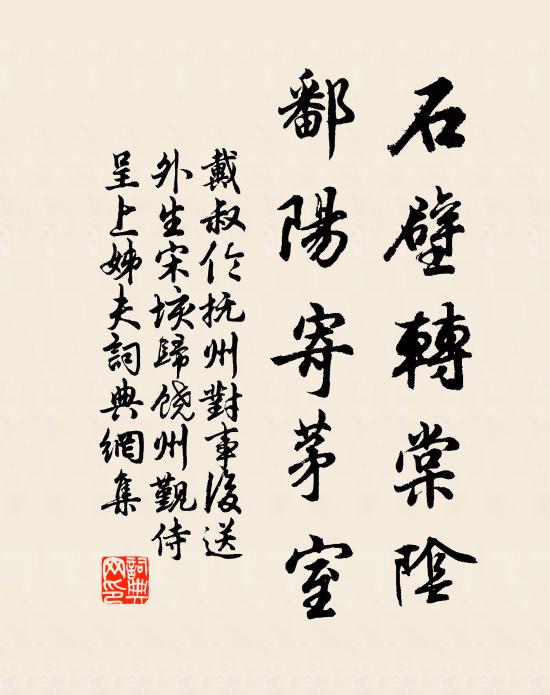 石壁轉棠陰
鄱陽寄茅室
戴叔伦抚州對事後送
外生宋垓歸饶州覲侍
呈上姊夫詞典網集
詞典
网印